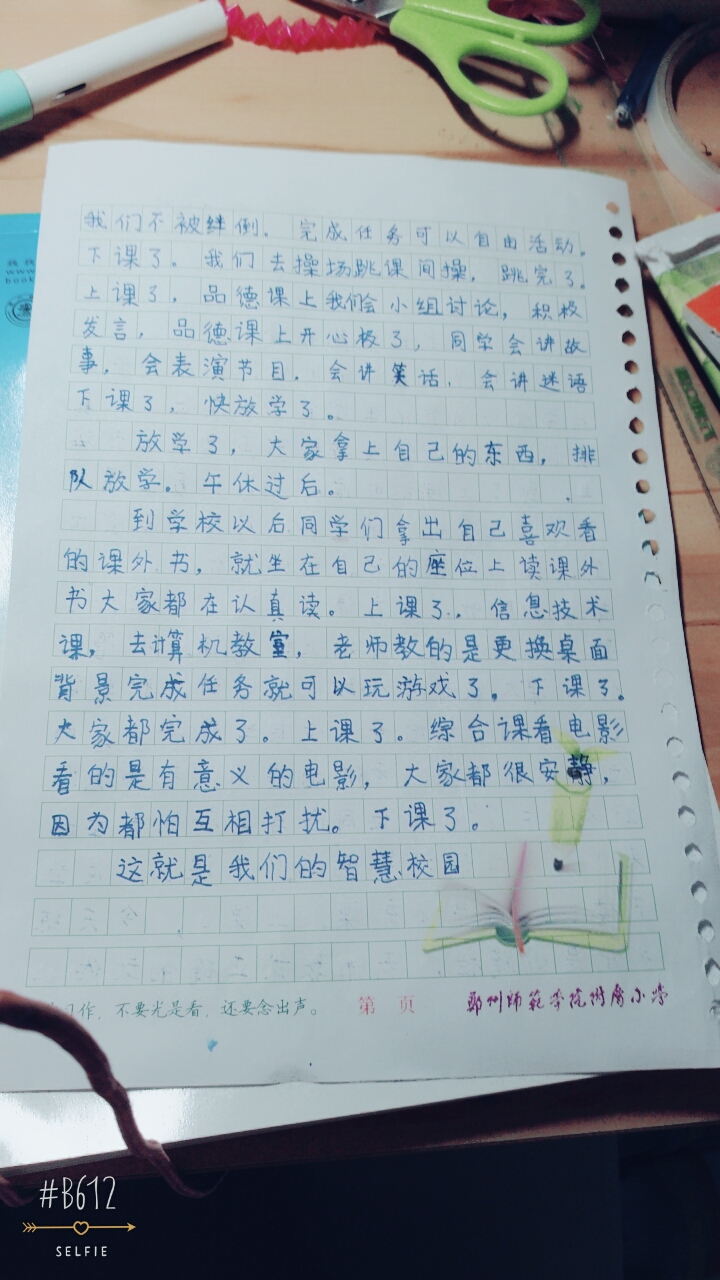 我们不被绊倒。完成任务可以自由活动。
下课了。我们去操场跳课间操，跳完了。
上课了，品德课上我们会小组讨论，积极
发言，品德课上开心极了，同学会讲故
事，会表演节目，会讲笑话，会讲迷语
下课了，快放学了。
放学了，大家拿上自己的东西，排
队放学。午休过后。
到学校以后同学们拿出自己喜欢看
的课外书，就坐在自己的座位上读课外
书大家都在认真读。上课了，信息技术
课，去计算机教室，老师教的是更换桌面
背景完成任务就可以玩游戏了。下课了。
大家都完成了。上课了。综合课看电影
看的是有意义的电影，大家都很安静，
因为都怕互相打扰。下课了。
这就是我们的智慧校园
习作，不要光是看，还要念出声。 第 页 郑州师范学院附属小学
#B612
SELFIE